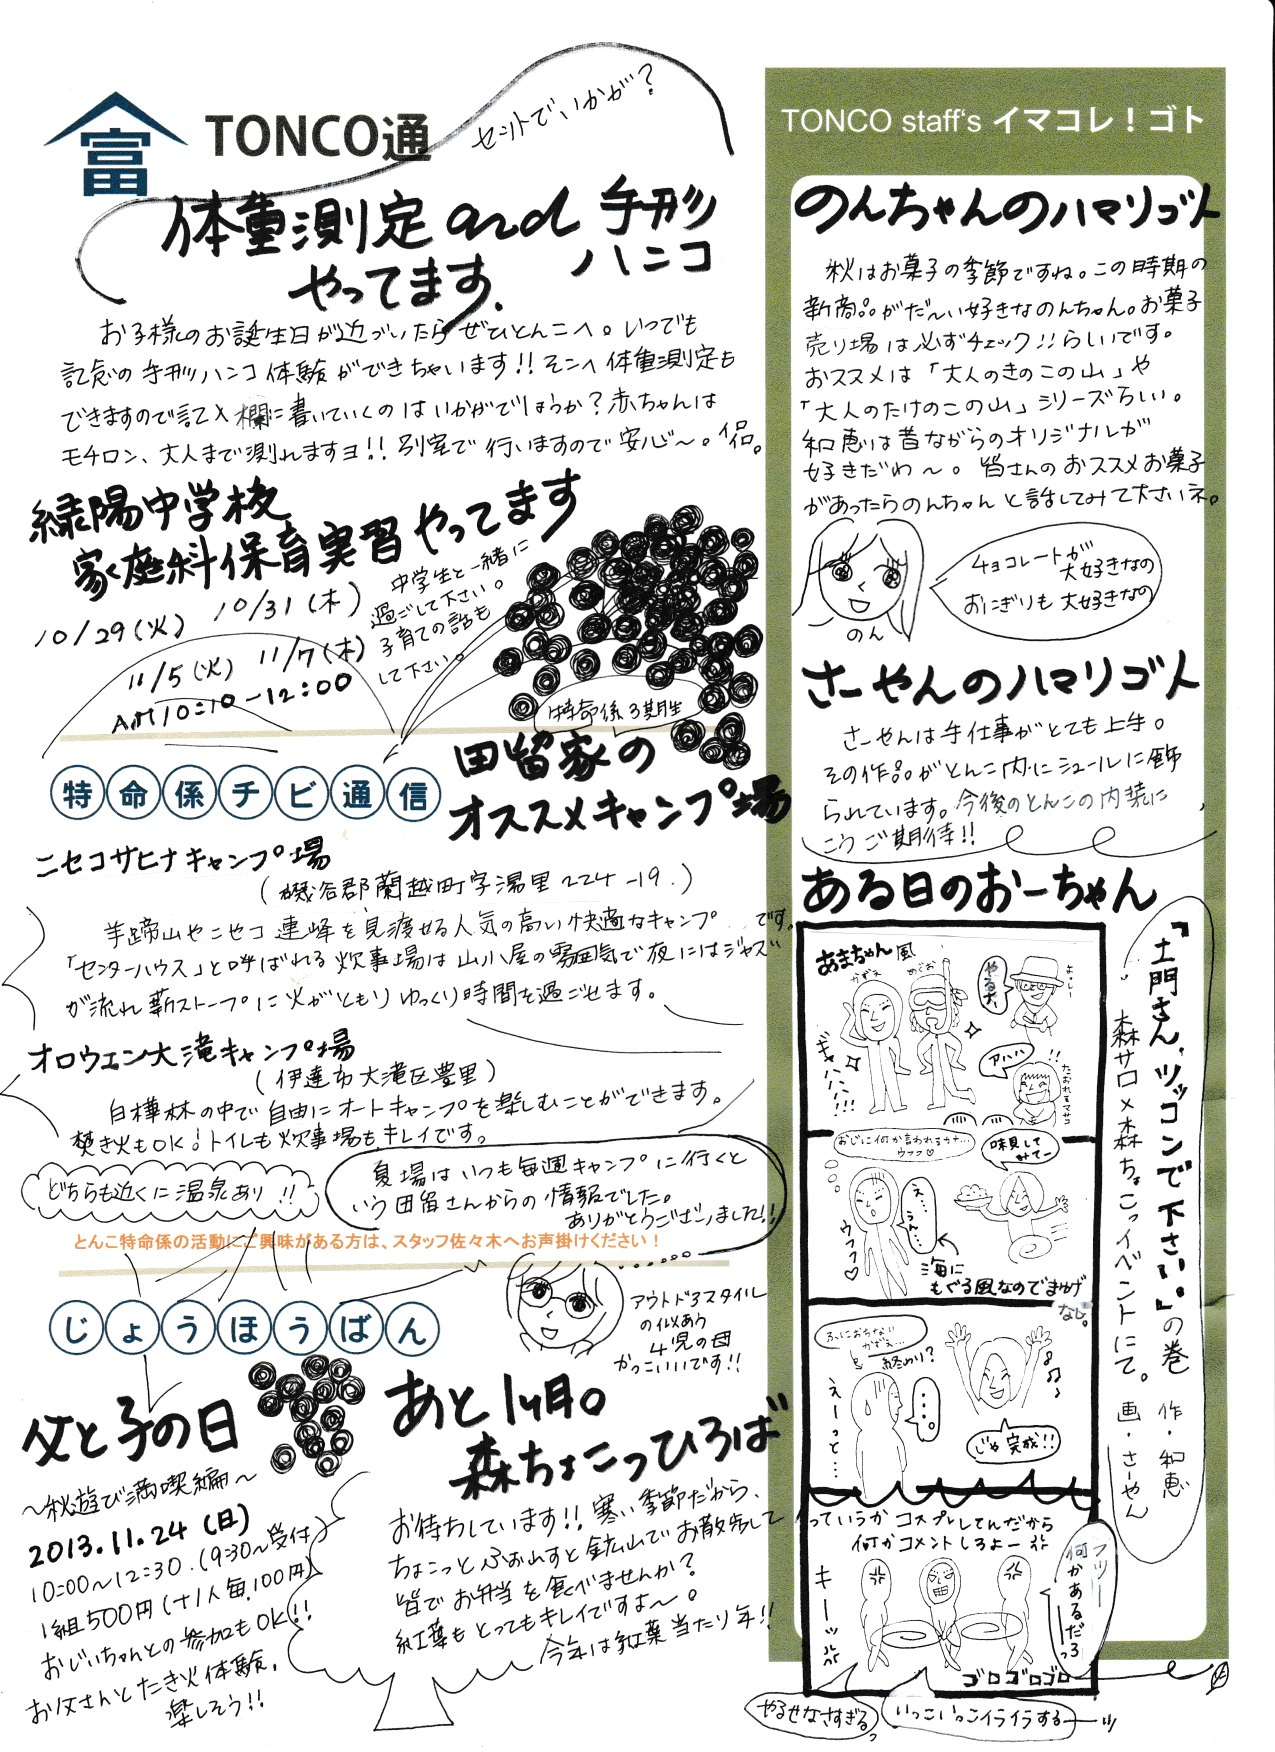 富
TONCO通
セットでいかが?
体重測定 and 手形
ハンコ
やってます.
お子様のお誕生日が近づいたらぜひとんこへ。いつでも
記念の手形ハンコ体験ができちゃいます!!そこへ体重測定も
できますので記入欄に書いていくのはいかがでしょうか?赤ちゃんは
モチロン、大人まで測れますヨ!!別室で行いますので安心〜。
緑陽中学校
家庭科保育実習やってます
10/29(火) 10/31(木)
11/5(火) 11/7(木)
AM10:10-12:00
中学生と一緒に
過ごして下さい。
子育ての話も
して下さい。
特命係3期生
特命係チビ通信
田留家の
オススメキャンプ場
ニセコサヒナキャンプ場
(磯谷郡蘭越町字湯里224-19.)
羊蹄山やニセコ連峰を見渡せる人気の高い快適なキャンプ です。
「センターハウス」と呼ばれる炊事場は山小屋の雰囲気で夜にはジャズ
が流れ薪ストーブに火がともりゆっくり時間を過ごせます。
オロウェン大滝キャンプ場
(伊達市大滝区豊里)
白樺林の中で自由にオートキャンプを楽しむことができます。
焚き火もOK!トイレも炊事場もキレイです。
どちらも近くに温泉あり!!
夏場はいつも毎週キャンプに行くと
いう田留さんからの情報でした。
ありがとうございました!!
とんこ特命係の活動にご興味がある方は、スタッフ佐々木へお声掛けください!
じょうほうばん
アウトドアスタイル
の似あう
4児の母
かっこいいです!!
父と子の日
〜秋遊び満喫編〜
2013.11.24(日)
10:00〜12:30.(9:30〜受付)
1組500円(+1人毎,100円)
おじいちゃんとの参加もOK!!
お父さんとたき火体験,
楽しそう!!
あと1ヶ月。
森ちょこっひろば
お待ちしています!!寒い季節だから、
ちょこっとふぉれすと鉱山でお散歩して
皆でお弁当を食べませんか?
紅葉もとってもキレイですよ〜。
今年は紅葉当たり年!!
TONCO staff's イマコレ!ゴト
のんちゃんのハマリゴト
秋はお菓子の季節ですね。この時期の
新商品がだ〜い好きなのんちゃん。お菓子
売り場は必ずチェック!!らしいです。
おススメは「大人のきのこの山」や
「大人のたけのこの山」シリーズらしい。
和恵は昔ながらのオリジナルが
好きだわ〜。皆さんのおススメお菓子
があったらのんちゃんと話してみて下さいネ。
チョコレートが
大好きなの
おにぎりも大好きなの
のん
さーやんのハマリゴト
さーやんは手仕事がとても上手。
その作品がとんこ内にシュールに飾
られています。今後のとんこの内装に
こうご期待!!
ある日のおーちゃん
「土門さん、ツッコンで下さい。」の巻
森サロ×森ちょこっイベントにて。
作・和恵
画・さーやん
あまちゃん風
かずえ
めぐお
やるな、
よっしー
ギャハハハ!!
アハハ
たおれるマサコ
おじに何か言われるカナ…
ウフフ♡
味見して
みてー
え…
うん…
ウフフ♡
海に
もぐる風なのでまゆげ
なし。
ふにおちない
かずえ…
え 終わり?
えーっと…
…。
じゃ完成!!
っていうかコスプレしてんだから
何かコメントしろよー
キーッ
フツー
何かあるだろっ
ゴロゴロゴロ
やるせなさすぎるっ
いっこいっこイライラするーッ